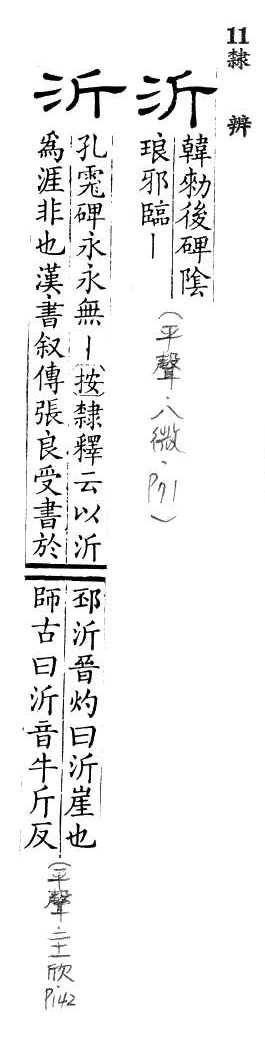 11隸辨
沂
韓勑後碑陰
琅邪臨丨
(平聲·八微·P71)
沂
孔宙碑永永無丨按隸釋云以沂
爲涯非也漢書叙傳張良受書於
邳沂晉灼曰沂崖也
師古曰沂音牛斤反
(平聲·二十一欣·P142)